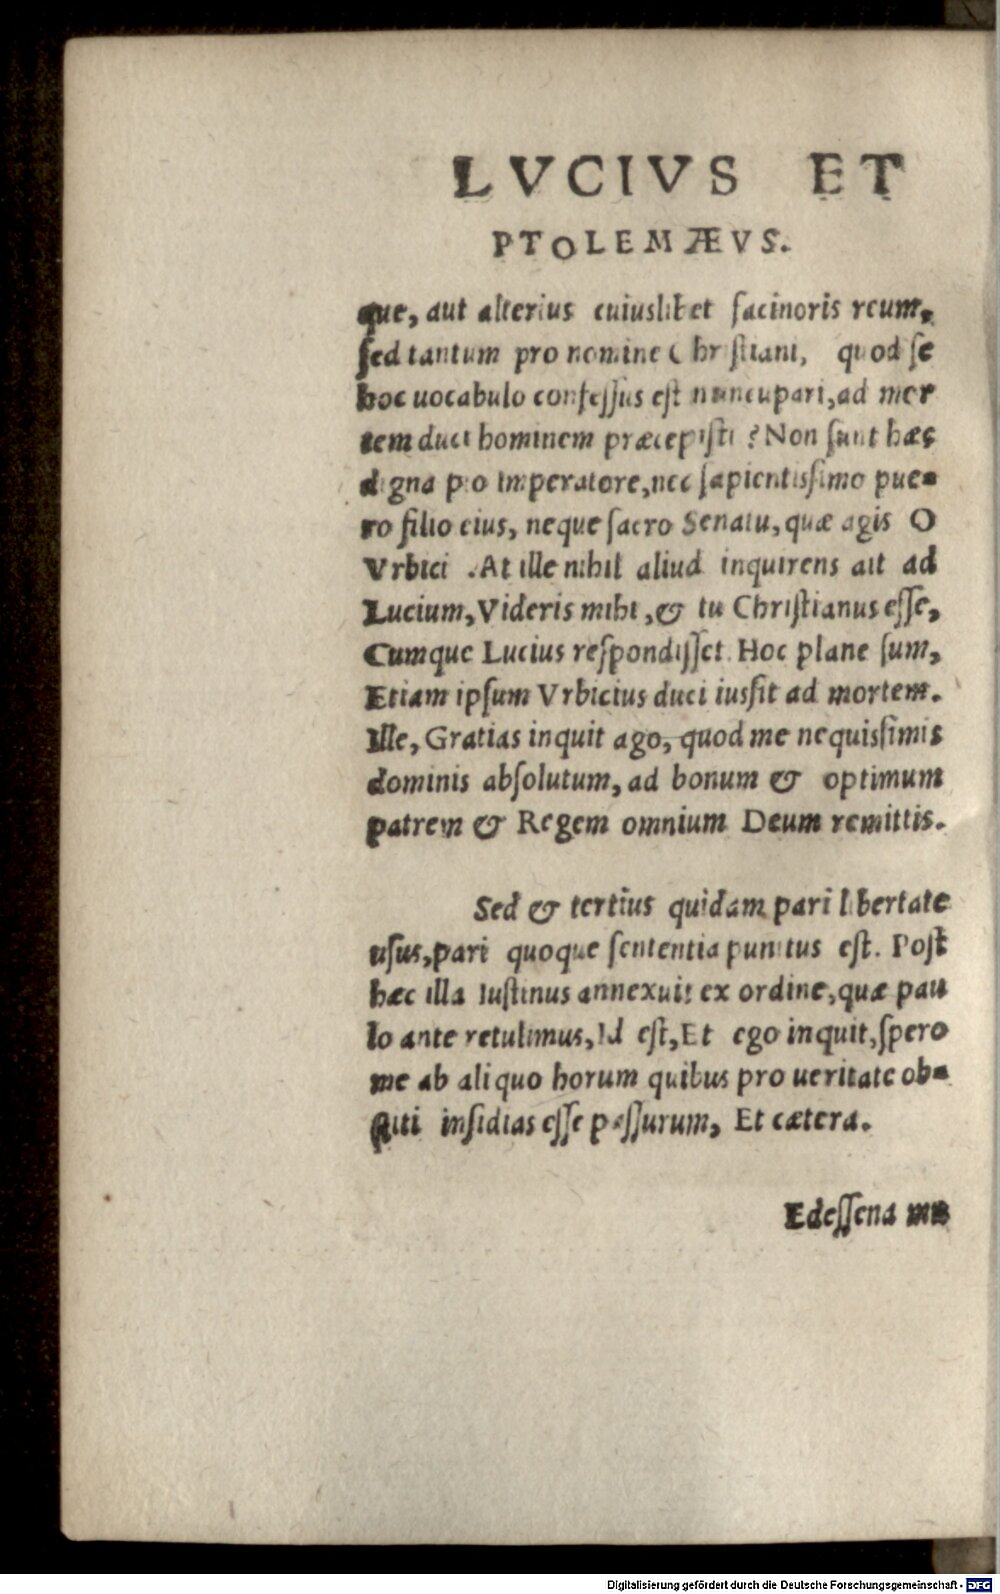 LVCIVS ET
PTOLEMÆVS.
que, aut alterius cuiuslibet facinoris reum,
sed tantum pro nomine Christiani, quod se
hoc uocabulo confessus est nuncupari, ad mor
tem duci hominem præcepisti? Non sunt hæc
digna pio Imperatore, nec sapientissimo pue-
ro filio eius, neque sacro Senatu, quæ agis O
Vrbici. At ille nihil aliud inquirens ait ad
Lucium, Videris mihi, & tu Christianus esse,
Cumque Lucius respondisset. Hoc plane sum,
Etiam ipsum Vrbicius duci iussit ad mortem.
Ille, Gratias inquit ago, quod me nequissimis
dominis absolutum, ad bonum & optimum
patrem & Regem omnium Deum remittis.
Sed & tertius quidam pari libertate
usus, pari quoque sententia punitus est. Post
hæc illa Iustinus annexuit ex ordine, quæ pau
lo ante retulimus, Id est, Et ego inquit, spero
me ab aliquo horum quibus pro ueritate ob-
stiti insidias esse passurum, Et cætera.
Edessena
Digitalisierung gefördert durch die Deutsche Forschungsgemeinschaft - DFG